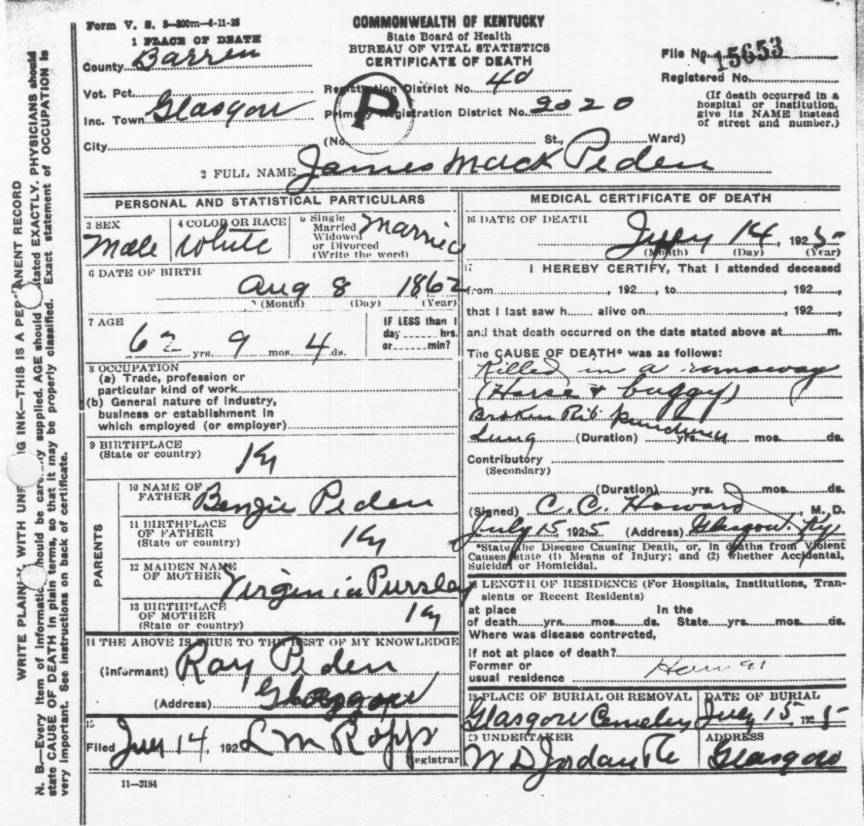 Form V. S. 3-300m-6-11-23
COMMONWEALTH OF KENTUCKY
State Board of Health
BUREAU OF VITAL STATISTICS
CERTIFICATE OF DEATH
1 PLACE OF DEATH
County Barren
File No. 15653
Registered No.
(If death occurred in a hospital or institution, give its NAME instead of street and number.)
Vot. Pct.
Registration District No. 40
Inc. Town Glasgow
Primary Registration District No. 2020
P
City (No. St., Ward)
2 FULL NAME James Mack Peden
PERSONAL AND STATISTICAL PARTICULARS
3 SEX
Male
4 COLOR OR RACE
White
5 Single
Married
Widowed
or Divorced
(Write the word)
Married
6 DATE OF BIRTH
Aug 8 1862
(Month) (Day) (Year)
7 AGE
62 yrs. 9 mos. 4 ds.
IF LESS than 1
day hrs.
or min?
8 OCCUPATION
(a) Trade, profession or
particular kind of work
(b) General nature of Industry,
business or establishment in
which employed (or employer)
9 BIRTHPLACE
(State or country)
Ky
PARENTS
10 NAME OF
FATHER Bengie Peden
11 BIRTHPLACE
OF FATHER
(State or country)
Ky
12 MAIDEN NAME
OF MOTHER Virginia Pursley
13 BIRTHPLACE
OF MOTHER
(State or country)
Ky
14 THE ABOVE IS TRUE TO THE BEST OF MY KNOWLEDGE
(Informant) Ray Peden
(Address) Glasgow
15
Filed July 14, 192 L M Ropp
Registrar
11-3184
MEDICAL CERTIFICATE OF DEATH
16 DATE OF DEATH
July 14, 1925
(Month) (Day) (Year)
17 I HEREBY CERTIFY, That I attended deceased
from , 192 , to , 192 ,
that I last saw h alive on , 192 ,
and that death occurred on the date stated above at m.
The CAUSE OF DEATH* was as follows:
Killed in a runaway
(Horse & buggy)
Broken Rib punctured
Lung (Duration) yrs. mos. ds.
Contributory
(Secondary)
(Duration) yrs. mos. ds.
(Signed) C. C. Howard, M. D.
July 15, 1925 (Address) Glasgow, Ky
*State the Disease Causing Death, or, in deaths from Violent
Causes state (1) Means of Injury; and (2) whether Accidental,
Suicidal or Homicidal.
18 LENGTH OF RESIDENCE (For Hospitals, Institutions, Tran-
sients or Recent Residents)
at place In the
of death yrs. mos. ds. State yrs. mos. ds.
Where was disease contracted,
if not at place of death?
Former or
usual residence
19 PLACE OF BURIAL OR REMOVAL
Glasgow Cemetery
DATE OF BURIAL
July 15, 1925
20 UNDERTAKER
W D Jordan
ADDRESS
Glasgow
N. B.—Every item of information should be carefully supplied. AGE should be stated EXACTLY. PHYSICIANS should
state CAUSE OF DEATH in plain terms, so that it may be properly classified. Exact statement of OCCUPATION is
very important. See instructions on back of certificate.
WRITE PLAINLY, WITH UNFADING INK—THIS IS A PERMANENT RECORD